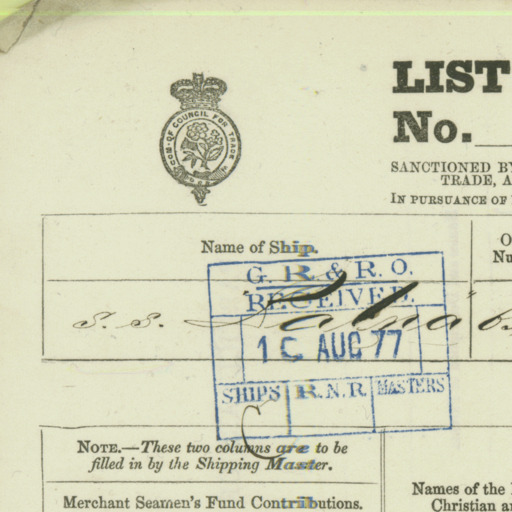 LIST
No.
COM. OF COUNCIL FOR TRADE
SANCTIONED BY
TRADE, A
IN PURSUANCE OF
Name of Ship.
O
Nu
G. R & R. O.
RECEIVED.
S. S.
AUG 77
SHIPS R.N.R. MASTERS
NOTE.—These two columns are to be
filled in by the Shipping Master.
Merchant Seamen's Fund Contributions.
Names of the
Christian an